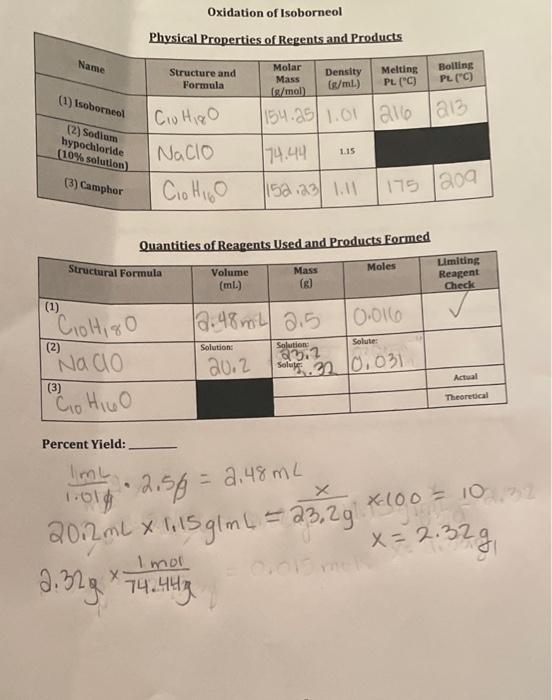 Oxidation of Isoborneol
Physical Properties of Regents and Products
Name
Structure and Formula
Molar Mass (g/mol)
Density (g/mL)
Melting Pt. (°C)
Boiling Pt. (°C)
(1) Isoborneol
C10H18O
154.25
1.01
216
213
(2) Sodium hypochloride (10% solution)
NaClO
74.44
1.15
(3) Camphor
C10H16O
152.23
1.11
175
209
Quantities of Reagents Used and Products Formed
Structural Formula
Volume (mL)
Mass (g)
Moles
Limiting Reagent Check
(1)
C10H18O
2.48mL
2.5
0.016
✓
(2)
NaClO
Solution:
20.2
Solution:
23.2
Solute:
2.32
Solute:
0.031
(3)
C10H16O
Actual
Theoretical
Percent Yield: ______
1mL / 1.01g · 2.5g = 2.48mL
20.2mL × 1.15g/mL = 23.2g
x / 23.2g × 100 = 10
x = 2.32g
2.32g × 1 mol / 74.44g